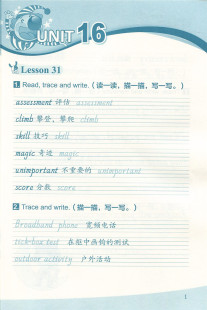 UNIT 16
Lesson 31
1 Read, trace and write. (读一读，描一描，写一写。)
assessment 评估 assessment
climb 攀登，攀爬 climb
skill 技巧 skill
magic 奇迹 magic
unimportant 不重要的 unimportant
score 分数 score
2 Trace and write. (描一描，写一写。)
Broadband phone 宽频电话
tick-box test 在框中画钩的测试
outdoor activity 户外活动
1